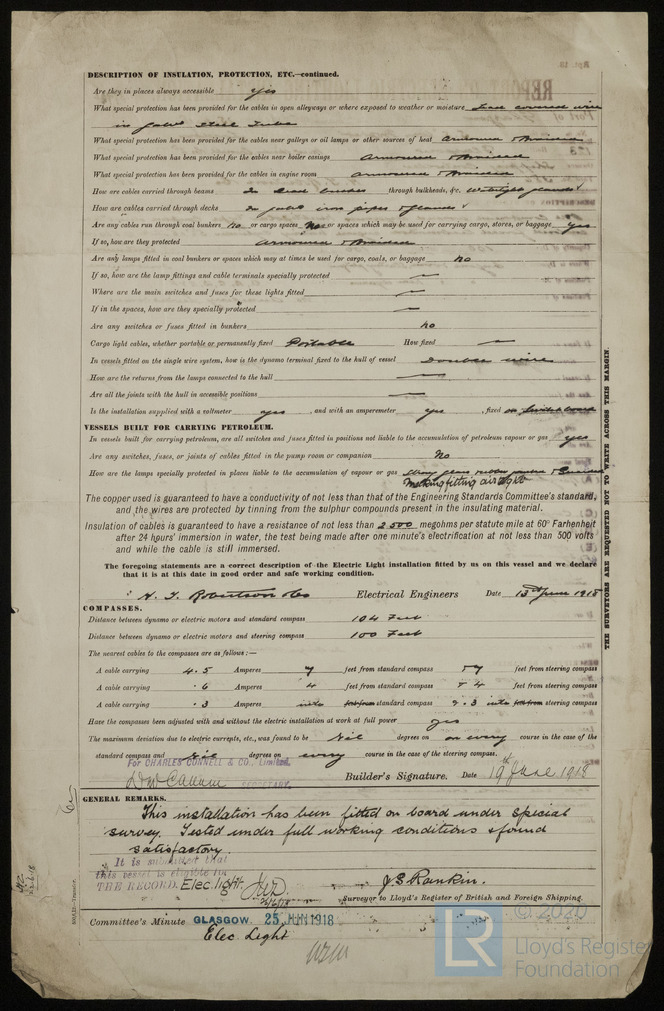 DESCRIPTION OF INSULATION, PROTECTION, ETC.—continued.
Are they in places always accessible yes
What special protection has been provided for the cables in open alleyways or where exposed to weather or moisture Lead covered wire
in galvd steel tube
What special protection has been provided for the cables near galleys or oil lamps or other sources of heat armoured & braided
What special protection has been provided for the cables near boiler casings armoured & braided
What special protection has been provided for the cables in engine room armoured & braided
How are cables carried through beams In lead bushes through bulkheads, &c. Watertight glands
How are cables carried through decks In galvd iron pipes & glands
Are any cables run through coal bunkers no or cargo spaces No or spaces which may be used for carrying cargo, stores, or baggage yes
If so, how are they protected armoured & braided
Are any lamps fitted in coal bunkers or spaces which may at times be used for cargo, coals, or baggage no
If so, how are the lamp fittings and cable terminals specially protected —
Where are the main switches and fuses for these lights fitted —
If in the spaces, how are they specially protected —
Are any switches or fuses fitted in bunkers no
Cargo light cables, whether portable or permanently fixed Portable How fixed —
In vessels fitted on the single wire system, how is the dynamo terminal fixed to the hull of vessel Double wire
How are the returns from the lamps connected to the hull —
Are all the joints with the hull in accessible positions —
Is the installation supplied with a voltmeter yes, and with an amperemeter yes, fixed on switchboard
VESSELS BUILT FOR CARRYING PETROLEUM.
In vessels built for carrying petroleum, are all switches and fuses fitted in positions not liable to the accumulation of petroleum vapour or gas yes
Are any switches, fuses, or joints of cables fitted in the pump room or companion No
How are the lamps specially protected in places liable to the accumulation of vapour or gas Strong glass
making fitting air tight
The copper used is guaranteed to have a conductivity of not less than that of the Engineering Standards Committee's standard,
and the wires are protected by tinning from the sulphur compounds present in the insulating material.
Insulation of cables is guaranteed to have a resistance of not less than 2500 megohms per statute mile at 60° Farhenheit
after 24 hours' immersion in water, the test being made after one minute's electrification at not less than 500 volts
and while the cable is still immersed.
The foregoing statements are a correct description of the Electric Light installation fitted by us on this vessel and we declare
that it is at this date in good order and safe working condition.
Robertson & Co Electrical Engineers Date 13th June 1918
COMPASSES.
Distance between dynamo or electric motors and standard compass 104 Feet
Distance between dynamo or electric motors and steering compass 100 Feet
The nearest cables to the compasses are as follows:—
A cable carrying 4.5 Amperes 7 feet from standard compass feet from steering compass
A cable carrying .6 Amperes 4 feet from standard compass 4 feet from steering compass
A cable carrying .3 Amperes into feet from standard compass .3 into feet from steering compass
Have the compasses been adjusted with and without the electric installation at work at full power yes
The maximum deviation due to electric currents, etc., was found to be Nil degrees on every course in the case of the
standard compass and Nil degrees on every course in the case of the steering compass.
For CHARLES CONNELL & CO., Limited.
SECRETARY. Builder's Signature. Date 19th June 1918
GENERAL REMARKS.
This installation has been fitted on board under special
survey. Tested under full working conditions & found
satisfactory.
It is submitted that
this vessel is eligible for
THE RECORD. Elec. light.
J S Rankin.
Surveyor to Lloyd's Register of British and Foreign Shipping.
Committee's Minute GLASGOW 25 JUN 1918
Elec Light
THE SURVEYORS ARE REQUESTED NOT TO WRITE ACROSS THIS MARGIN.
© 2020
LR
Lloyd's Register
Foundation